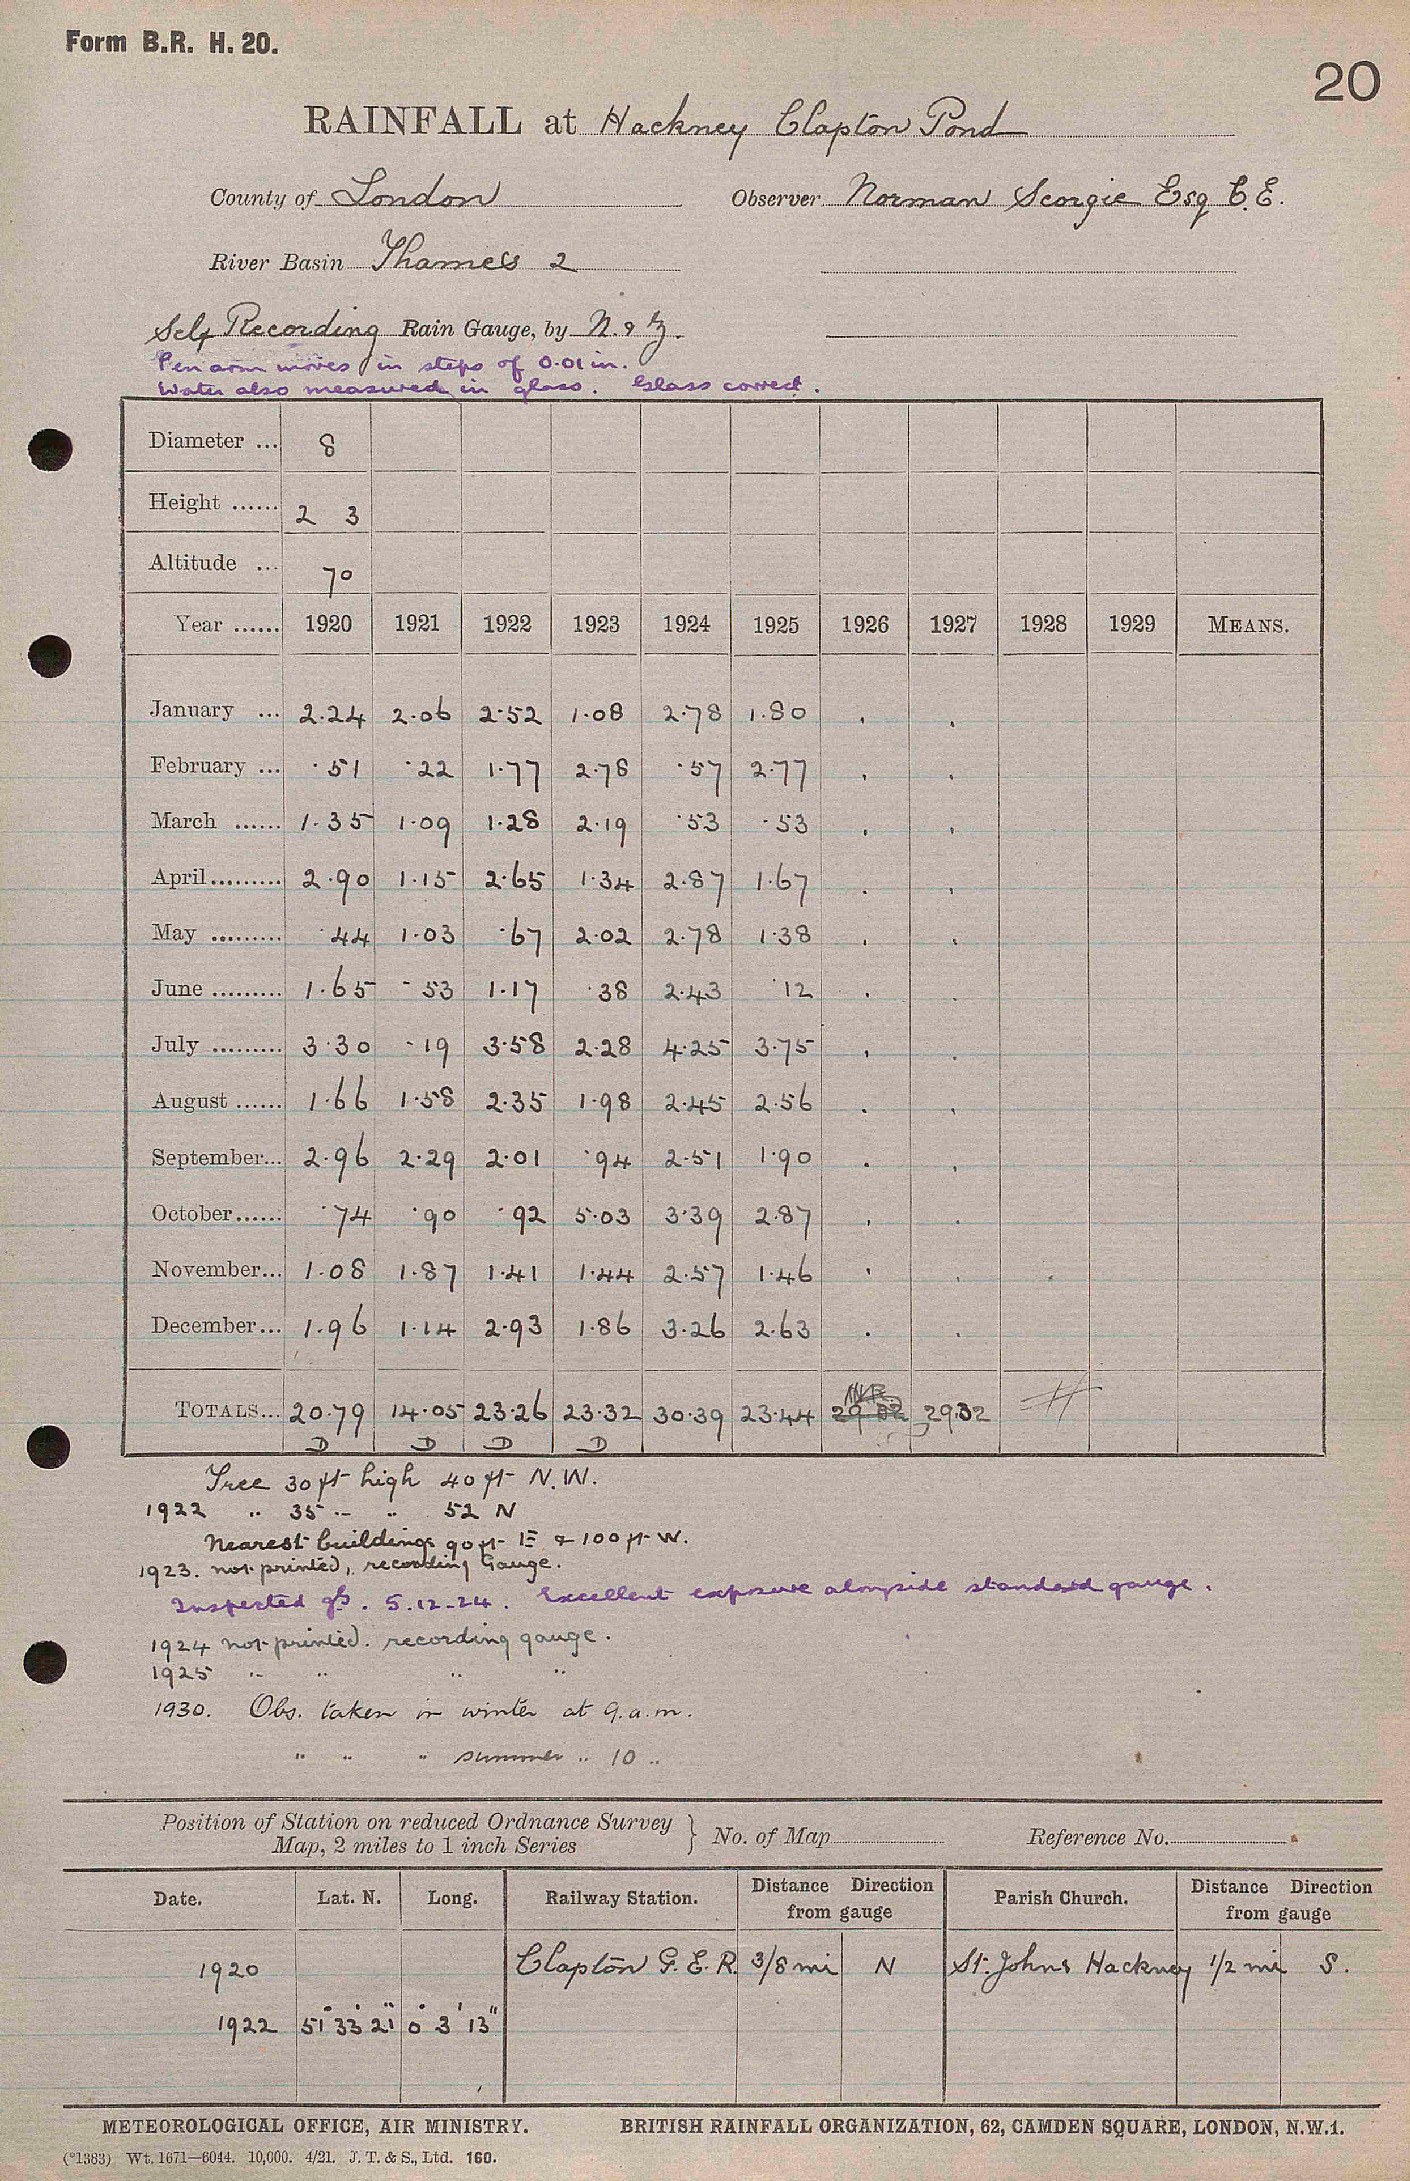 Form B.R. H. 20.
20
RAINFALL at Hackney Clapton Pond
County of London Observer Norman Scorgie Esq C.E.
River Basin Thames 2
Self Recording Rain Gauge, by N. & Z.
Pen arm moves in steps of 0.01 in.
Water also measured in glass. Glass correct.
Diameter ... 8
Height ...... 2 3
Altitude ... 70
Year ...... 1920 1921 1922 1923 1924 1925 1926 1927 1928 1929 MEANS.
January ... 2.24 2.06 2.52 1.08 2.78 1.80 . .
February ... .51 .22 1.77 2.78 .57 2.77 . .
March ...... 1.35 1.09 1.28 2.19 .53 .53 . .
April ......... 2.90 1.15 2.65 1.34 2.87 1.67 . .
May ......... .44 1.03 .67 2.02 2.78 1.38 . .
June ......... 1.65 .53 1.17 .38 2.43 .12 . .
July ......... 3.30 .19 3.58 2.28 4.25 3.75 . .
August ...... 1.66 1.58 2.35 1.98 2.45 2.56 . .
September... 2.96 2.29 2.01 .94 2.51 1.90 . .
October...... .74 .90 .92 5.03 3.39 2.87 . .
November... 1.08 1.87 1.41 1.44 2.57 1.46 . .
December... 1.96 1.14 2.93 1.86 3.26 2.63 . .
TOTALS... 20.79 14.05 23.26 23.32 30.39 23.44 29.32
D D D D
Tree 30 ft high 40 ft N.W.
1922 " 35 " " 52 N
Nearest buildings 90 ft E & 100 ft W.
1923. not printed, recording Gauge.
Inspected 5.12.24. Excellent exposure alongside standard gauge.
1924 not printed. recording gauge.
1925 " " " "
1930. Obs. taken in winter at 9.a.m.
" " " summer " 10 "
Position of Station on reduced Ordnance Survey
Map, 2 miles to 1 inch Series } No. of Map Reference No.
Date. Lat. N. Long. Railway Station. Distance Direction from gauge Parish Church. Distance Direction from gauge
1920 Clapton G.E.R. 3/8 mi N St. Johns Hackney 1/2 mi S.
1922 51° 33' 21" 0° 3' 13"
METEOROLOGICAL OFFICE, AIR MINISTRY. BRITISH RAINFALL ORGANIZATION, 62, CAMDEN SQUARE, LONDON, N.W.1.
(*1383) Wt. 1671—6044. 10,000. 4/21. J. T. & S., Ltd. 160.